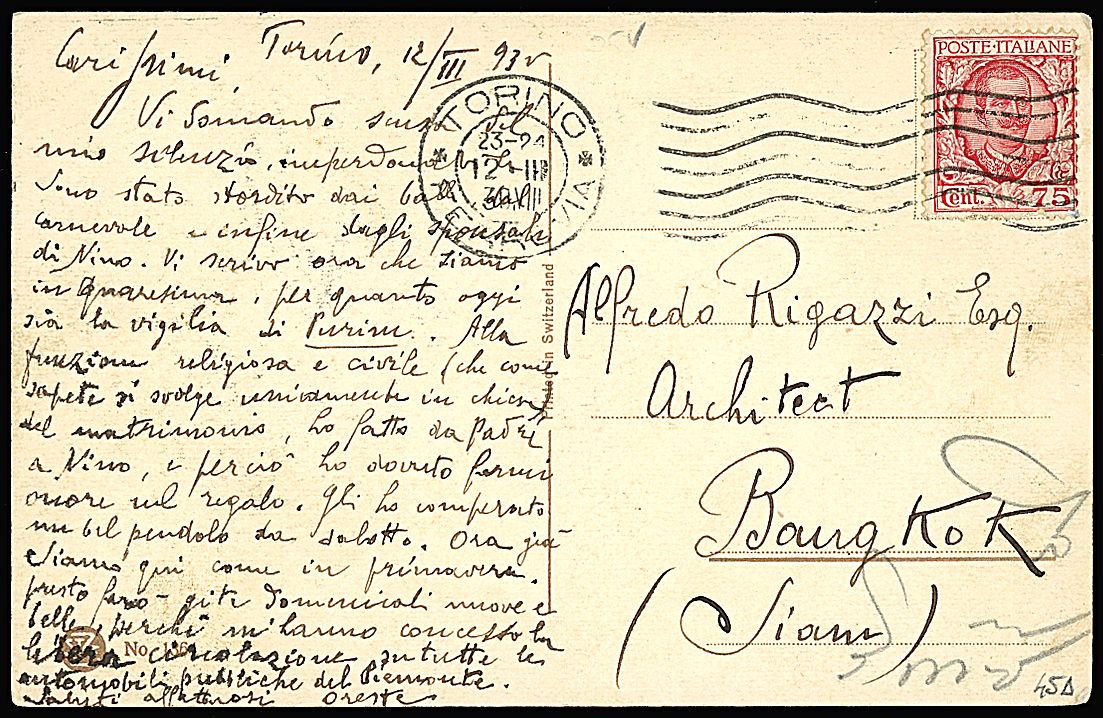 Carissimi Torino, 12/III 930
Vi domando scusa del
mio silenzio, imperdonabile.
Sono stato stordito dai balli del
carnevale e infine dagli sponsali
di Nino. Vi scrivo ora che siamo
in Quaresima, per quanto oggi
sia la vigilia di Purim. Alla
funzione religiosa e civile (che come
sapete si svolge unicamente in chiesa)
del matrimonio, ho fatto da Padre
a Nino, e perciò ho dovuto farmi
onore nel regalo. Gli ho comperato
un bel pendolo da salotto. Ora già
siamo qui come in primavera.
presto farò gite domenicali nuove e
belle, perchè m'hanno concesso la
libera circolazione su tutte le
automobili pubbliche del Piemonte.
Saluti affettuosi Oreste
No.
Printed in Switzerland
TORINO
23-24
12·III
30 VIII
FERROVIA
POSTE·ITALIANE
Cent. 75
Alfredo Rigazzi Esq.
Architect
Bangkok
(Siam)
45Δ